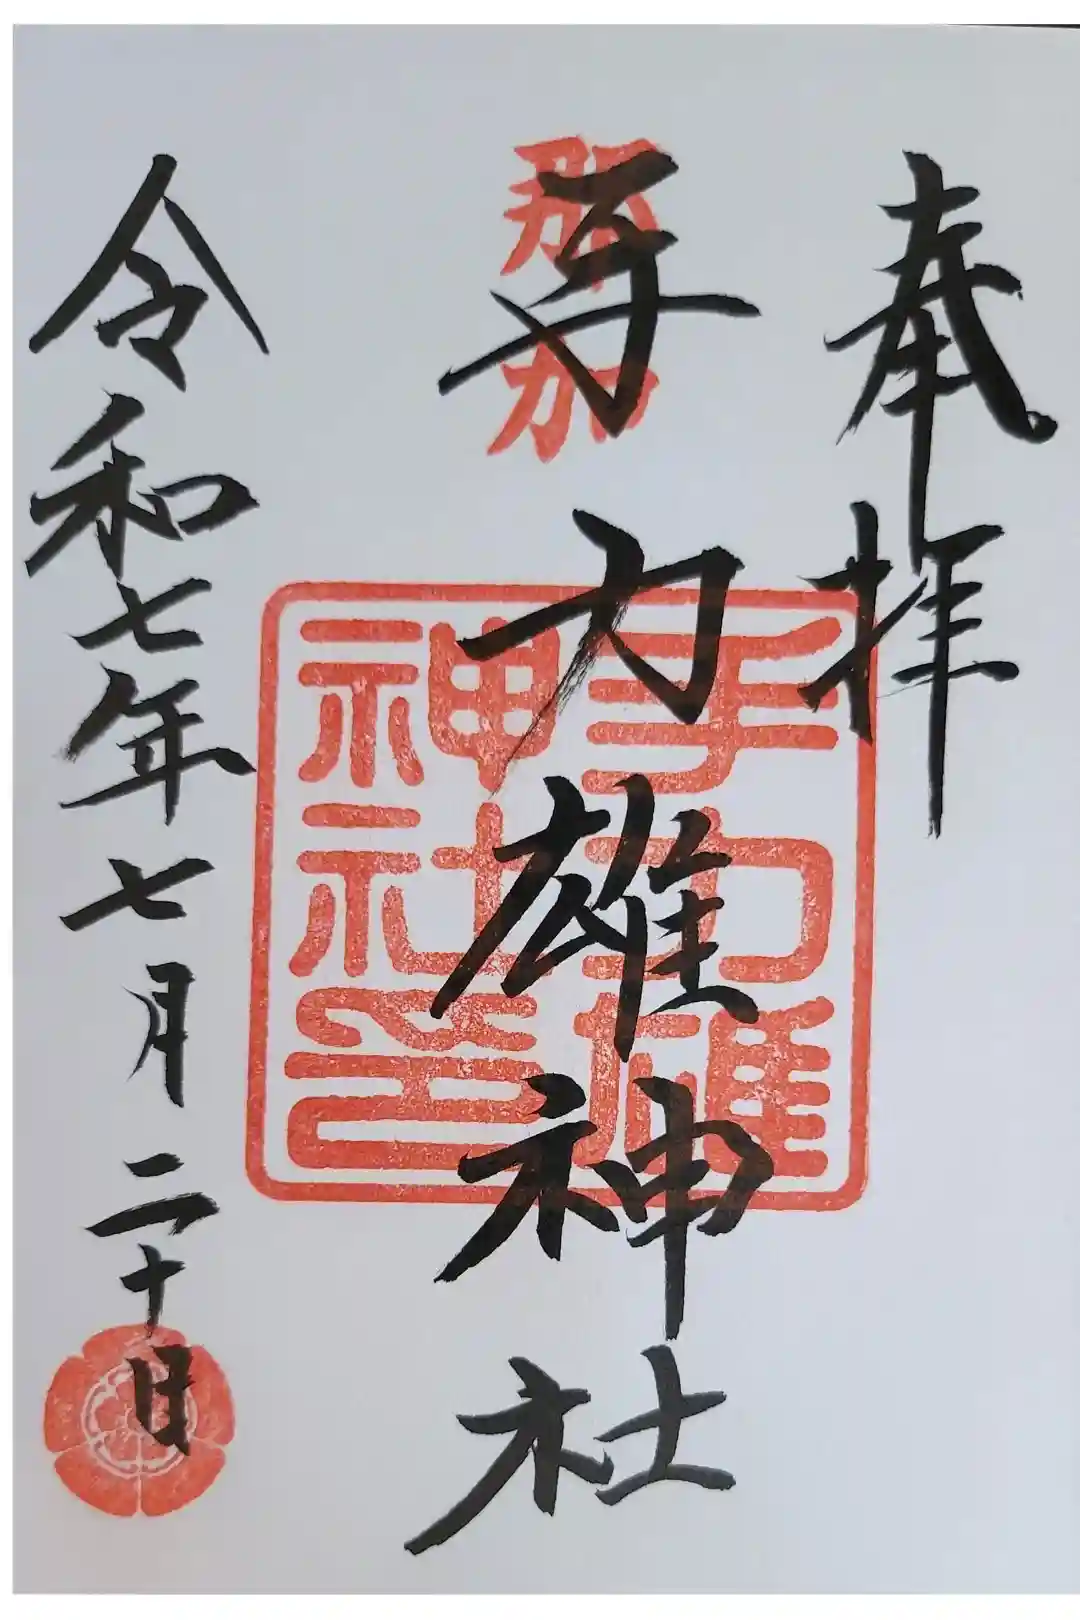 奉拝
那加
手力雄神社
手力雄
神社印
令和七年七月二十日